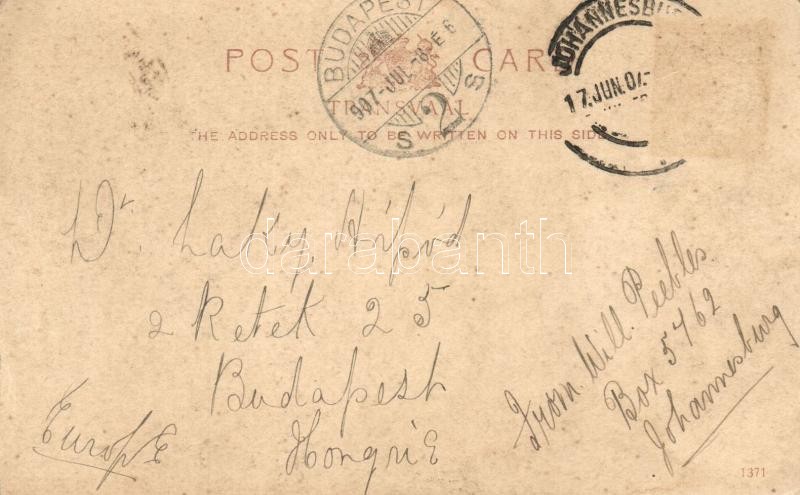 POST CARD
TRANSVAAL
THE ADDRESS ONLY TO BE WRITTEN ON THIS SIDE
BUDAPEST
907-JUL-8 E 6
S 2 S
JOHANNESBU
17 JUN. 07
Dr. Laky,
2 Retek 25
Budapest
HongriE
EuropE
From Will. Peebles.
Box 5762
Johannesburg
1371
darabanth